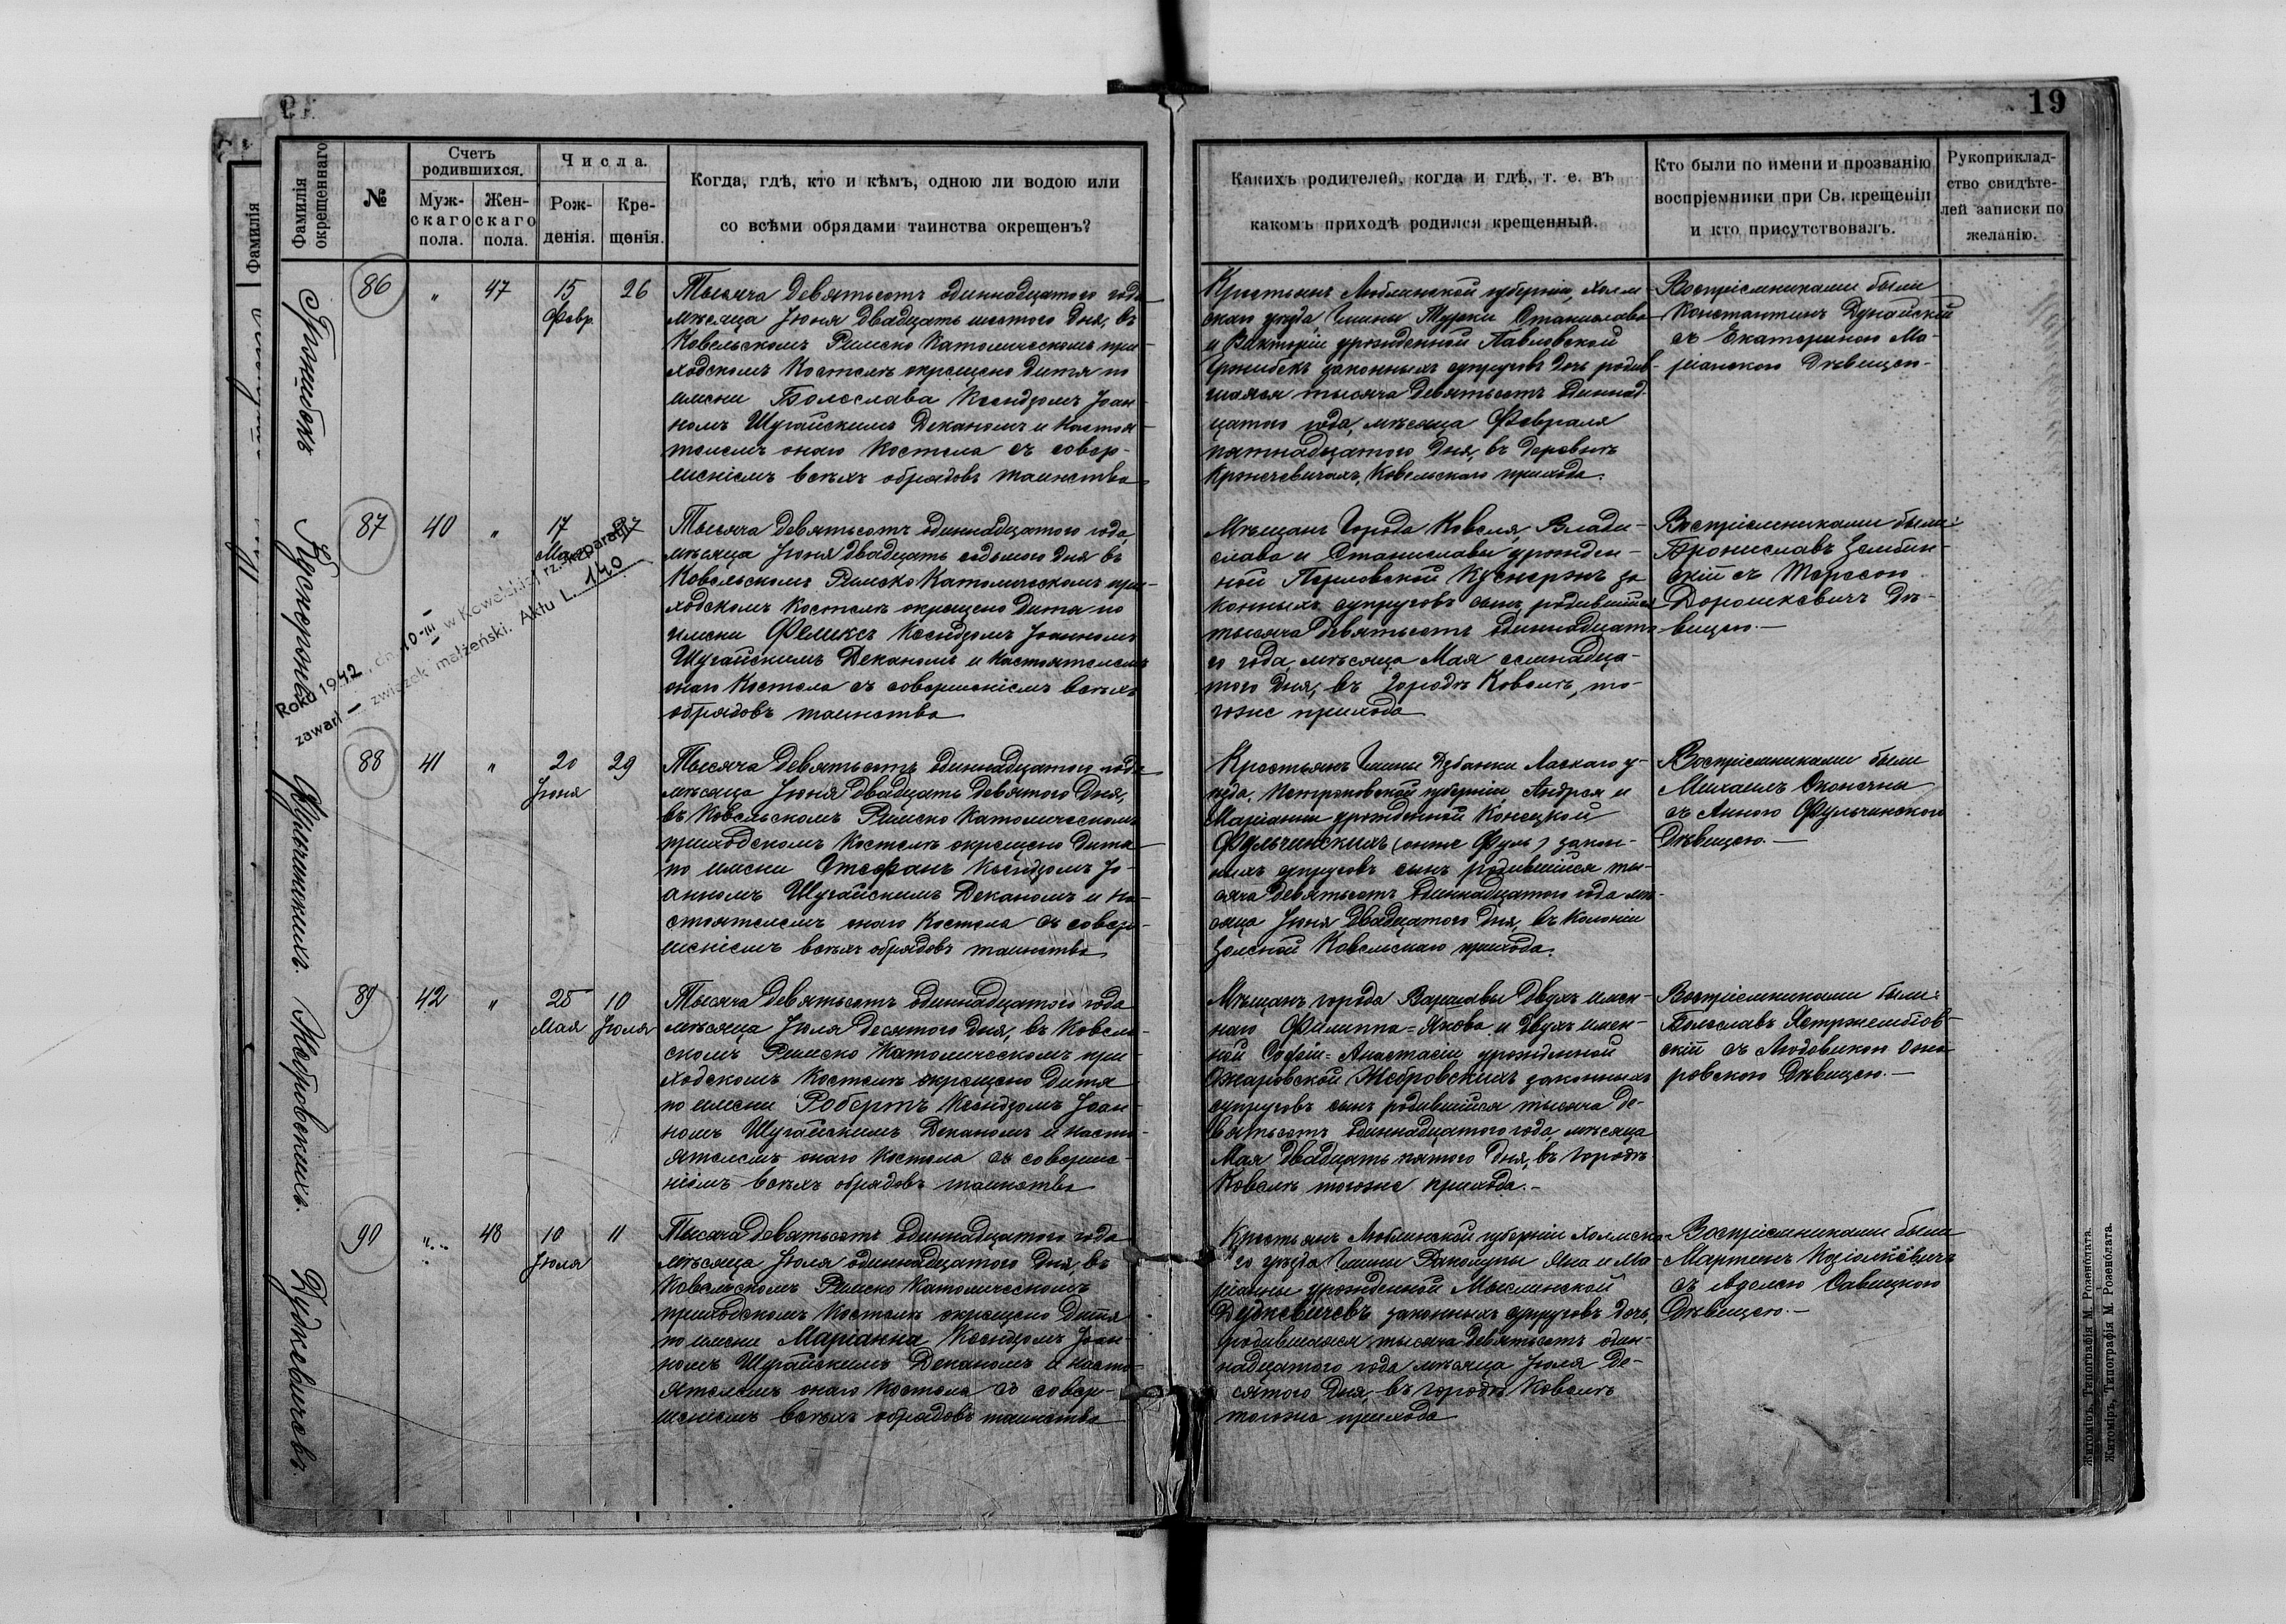 19
Фамилія
Фамилія окрещеннаго
№
Счетъ родившихся.
Муж-скаго пола.
Жен-скаго пола.
Числа.
Рож-денія.
Кре-щенія.
Когда, гдѣ, кто и кѣмъ, одною ли водою или
со всѣми обрядами таинства окрещенъ?
Какихъ родителей, когда и гдѣ, т. е. въ
какомъ приходѣ родился крещенный.
Кто были по имени и прозванію
воспріемники при Св. крещеніи
и кто присутствовалъ.
Рукоприклад-
ство свидѣте-
лей записки по
желанію.
86
" 47 15 Февр. 26
Тысяча девятьсотъ одиннадцатого года
мѣсяца Іюня двадцать шестого дня, въ
Ковельскомъ Римско Католическомъ при-
ходскомъ Костелѣ окрещено дитя по
имени Болеслава Ксендзомъ Іоан-
номъ Шугайскимъ Деканомъ и Настоя-
телемъ онаго Костела съ совер-
шеніемъ всѣхъ обрядовъ таинства
Крестьянъ Люблинской губерніи, Холм-
скаго уѣзда, Гмины Турки Станислава
и Викторіи урожденной Павловской
законныхъ супруговъ дочь родив-
шаяся тысяча девятьсотъ одиннад-
цатого года, мѣсяца Февраля
пятнадцатого дня, въ деревнѣ
Ковельскаго прихода.
Воспріемниками были
Константинъ Дунайскій
съ Екатериною Ма-
ріанскою Дѣвицею-
87
Кусперокъ
40 " 17 Мая 27
Roku 1942 dn. 10-III w Kowelskiej rz.k. parafji
zawarł związek małżeński. Aktu L. 140
Тысяча девятьсотъ одиннадцатого года,
мѣсяца Іюня двадцать седьмого дня въ
Ковельскомъ Римско Католическомъ при-
ходскомъ Костелѣ окрещено дитя по
имени Феликсъ Ксендзомъ Іоанномъ
Шугайскимъ Деканомъ и Настоятелемъ
онаго Костела съ совершеніемъ всѣхъ
обрядовъ таинства
Мѣщанъ Города Ковеля, Влади-
слава и Станиславы урожден-
ной за
конныхъ супруговъ сынъ, родившійся
тысяча девятьсотъ одиннадцато-
го года, мѣсяца Мая семнадца-
того дня, въ Городѣ Ковелѣ, то-
гоже прихода
Воспріемниками были:
Брониславъ Зембин-
скій съ Терезою
Дорошкевичъ Дѣ-
вицею.-
88
Фульчинскихъ.
41 " 20 Іюня 29
Тысяча девятьсотъ одиннадцатого года
мѣсяца Іюня двадцать девятого дня,
въ Ковельскомъ Римско Католическомъ
приходскомъ Костелѣ окрещено дитя
по имени Стефанъ Ксендзомъ Іо-
анномъ Шугайскимъ Деканомъ и На-
стоятелемъ онаго Костела съ совер-
шеніемъ всѣхъ обрядовъ таинства
Крестьянъ Гмины Дзбанки Ласкаго у-
ѣзда, Петроковской губерніи, Андрея и
Маріанны урожденной Конецкой
Фульчинскихъ (онже Фуль) закон-
ныхъ супруговъ сынъ родившійся ты-
сяча девятьсотъ одиннадцатого года мѣ-
сяца Іюня двадцатого дня, въ Колоніи
Зеленой Ковельскаго прихода.
Воспріемниками были
Михаилъ
съ Анною Фульчинскою
Дѣвицею.-
89
Жебровскихъ.
42 " 25 Мая 10 Іюля
Тысяча девятьсотъ одиннадцатого года
мѣсяца Іюля десятого дня, въ Ковель-
скомъ Римско Католическомъ при-
ходскомъ Костелѣ окрещено дитя
по имени Робертъ Ксендзомъ Іоан-
номъ Шугайскимъ Деканомъ и Насто-
ятелемъ онаго Костела съ соверше-
ніемъ всѣхъ обрядовъ таинства
Мѣщанъ города Варшавы двухъ имен-
наго Филиппа=Якова и двухъ имен-
ной Софіи=Анастасіи урожденной
Ожаровской Жебровскихъ законныхъ
супруговъ сынъ родившійся тысяча де-
вятьсотъ одиннадцатого года, мѣсяца
Мая двадцать пятого дня, въ городѣ
Ковелѣ тогоже прихода.-
Воспріемниками были:
Болеславъ Ястржембіов-
скій съ Людовикою Ожа-
ровскою Дѣвицею.-
90
Дудкевичевъ.
" 48 10 Іюля 11
Тысяча девятьсотъ одиннадцатого года
мѣсяца Іюля одиннадцатого дня, въ
Ковельскомъ Римско Католическомъ
приходскомъ Костелѣ окрещено дитя
по имени Маріанна Ксендзомъ Іоан-
номъ Шугайскимъ Деканомъ и Насто-
ятелемъ онаго Костела съ совер-
шеніемъ всѣхъ обрядовъ таинства
Крестьянъ Люблинской губерніи Холмска-
го уѣзда Гмины Раколупы Яна и Ма-
ріанны урожденной Мыслинской
Дудкевичевъ законныхъ супруговъ дочь,
родившаяся тысяча девятьсотъ один-
надцатого года мѣсяца Іюля де-
сятого дня, въ городѣ Ковелѣ
тогоже прихода
Воспріемниками были
Мартинъ
съ Аделею Савицкою
Дѣвицею.-
Житоміръ, Типографія М. Розенблата.
Житоміръ, Типографія М. Розенблата.